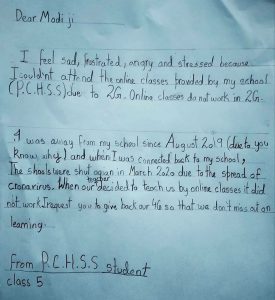 Dear Modi ji
I feel sad, frustrated, angry and stressed because
I couldn't attend the online classes provided by my school
(P.C.H.S.S) due to 2G. Online classes do not work in 2G.
I was away from my school since August 2019 (due to you
know, why) and when I was connected back to my school,
The shools were shut again in March 2020 due to the spread of
cronavirus. When our teacher decided to teach us by online classes it did
not work. I request you to give back our 4G so that we don't miss out on
learning.
From P.C.H.S.S student
class 5